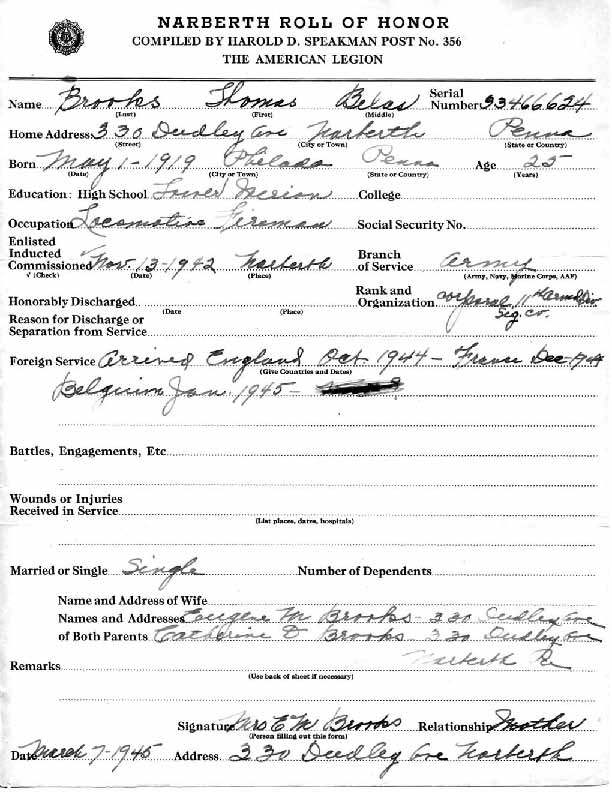 NARBERTH ROLL OF HONOR
COMPILED BY HAROLD D. SPEAKMAN POST No. 356
THE AMERICAN LEGION
Name Brooks Thomas Belas Serial Number 33466624
(Last) (First) (Middle)
Home Address 330 Dudley Ave Narberth Penna
(Street) (City or Town) (State or Country)
Born May 1-1919 Philada Penna Age 25
(Date) (City or Town) (State or Country) (Years)
Education: High School Lower Merion College
Occupation Locomotive Fireman Social Security No.
Enlisted
Inducted
Commissioned Nov. 13-1942 Narberth Branch of Service Army
√ (Check) (Date) (Place) (Army, Navy, Marine Corps, AAF)
Honorably Discharged Rank and Organization Corporal, 11th Armd Div
(Date (Place) Sig. Co.
Reason for Discharge or
Separation from Service
Foreign Service Arrived England Oct 1944 - France Dec-1944
(Give Countries and Dates)
Belguim Jan. 1945-
Battles, Engagements, Etc
Wounds or Injuries
Received in Service
(List places, dates, hospitals)
Married or Single Single Number of Dependents
Name and Address of Wife
Names and Addresses Eugene M Brooks - 330 Dudley Ave
of Both Parents Catherine D Brooks 330 Dudley Ave
Narberth Pa
Remarks
(Use back of sheet if necessary)
Signature Mrs E M Brooks Relationship Mother
(Person filling out this form)
Date March 7-1945 Address 330 Dudley Ave Narberth